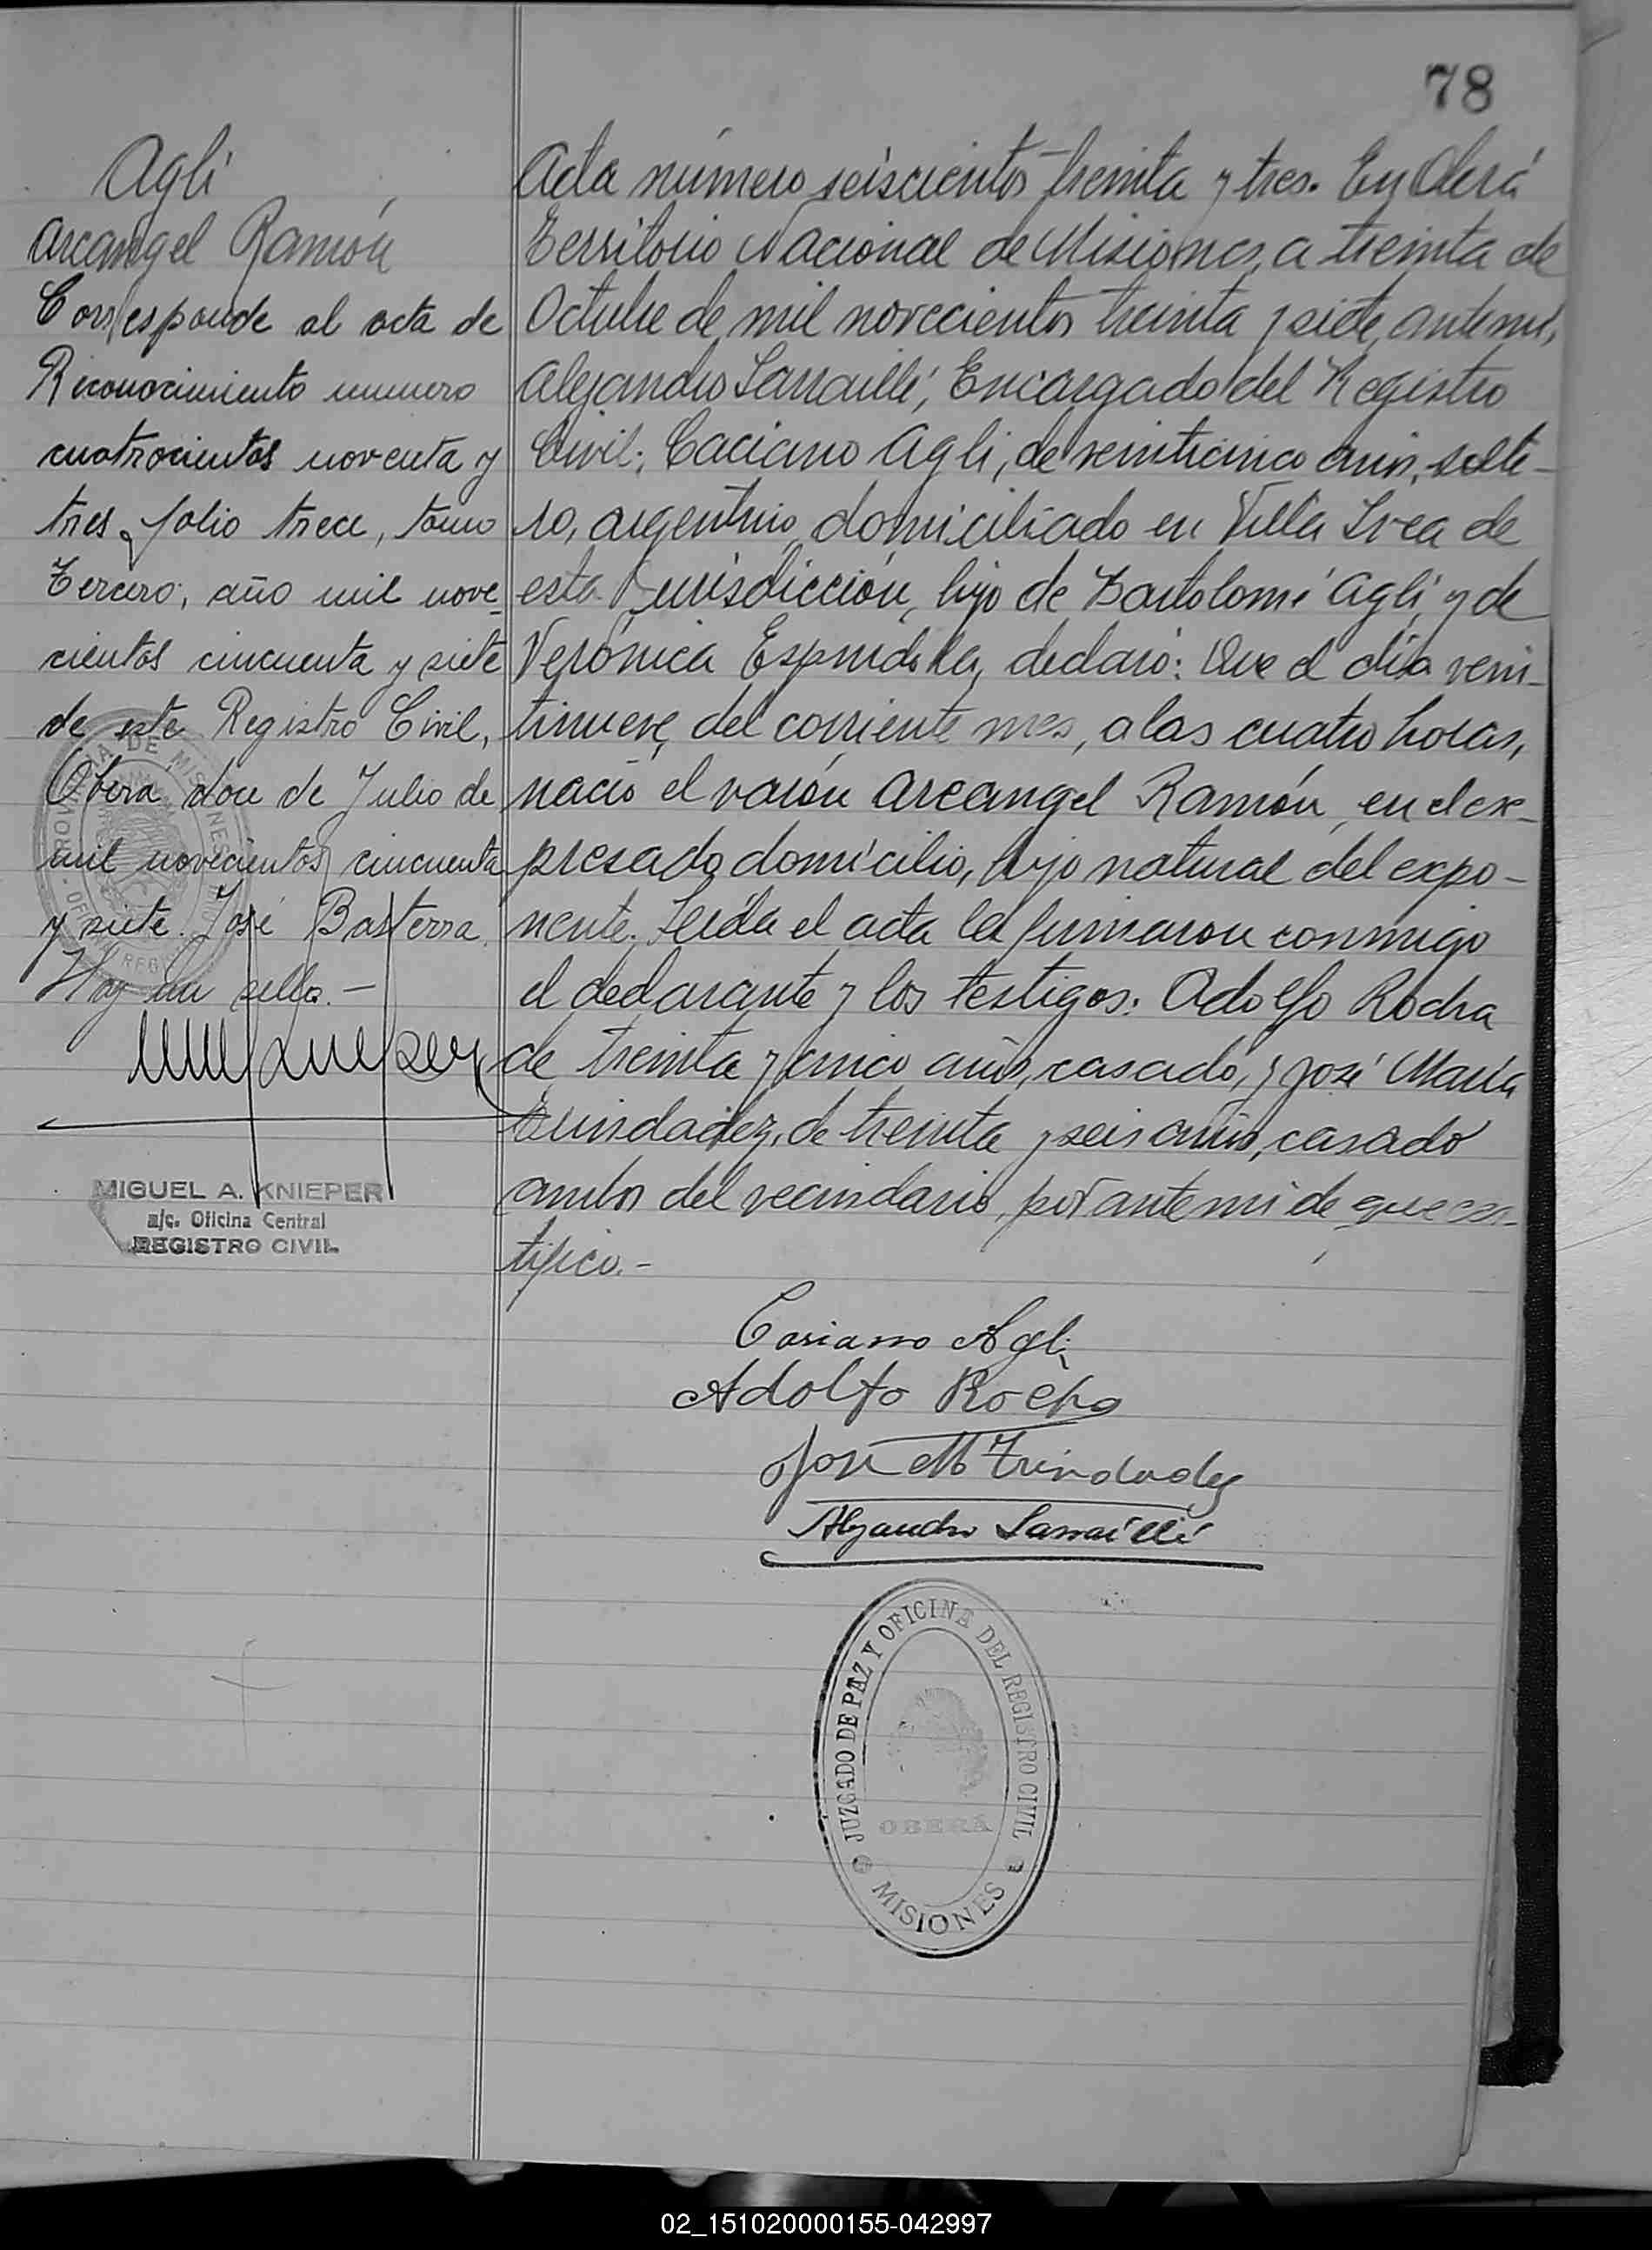 78
Agli
Arcangel Ramón
Corresponde al acta de
Reconocimiento numero
cuatrocientos noventa y
tres, folio trece, tomo
Tercero, año mil nove-
cientos cincuenta y siete
de este Registro Civil,
Oberá, doce de Julio de
mil novecientos cincuenta
y siete. José Basterra.
Hay un sello.-
MIGUEL A. KNIEPER
a/c. Oficina Central
REGISTRO CIVIL
Acta número seiscientos treinta y tres. En Oberá
Territorio Nacional de Misiones, a treinta de
Octubre de mil novecientos treinta y siete, ante mí,
Alejandro Sarraillé, Encargado del Registro
Civil; Caciano Agli, de veinticinco años, solte-
ro, argentino, domiciliado en Villa Svea de
esta Jurisdicción, hijo de Bartolomé Agli, y de
Verónica Espindola, declaró: Que el día vein-
tinueve, del corriente mes, a las cuatro horas,
nació el varón Arcangel Ramón, en el ex-
presado domicilio, hijo natural del expo-
nente. Leída el acta la firmaron conmigo
el declarante y los testigos: Adolfo Rocha
de treinta y cinco años, casado, y José María
Trindadez, de treinta y seis años, casado
ambos del vecindario, por ante mi de que cer-
tifico.-
Casiano Agli
Adolfo Rocha
José M Trindadez
Alejandro Sarraillé
JUZGADO DE PAZ Y OFICINA DEL REGISTRO CIVIL
OBERÁ
MISIONES
02_151020000155-042997